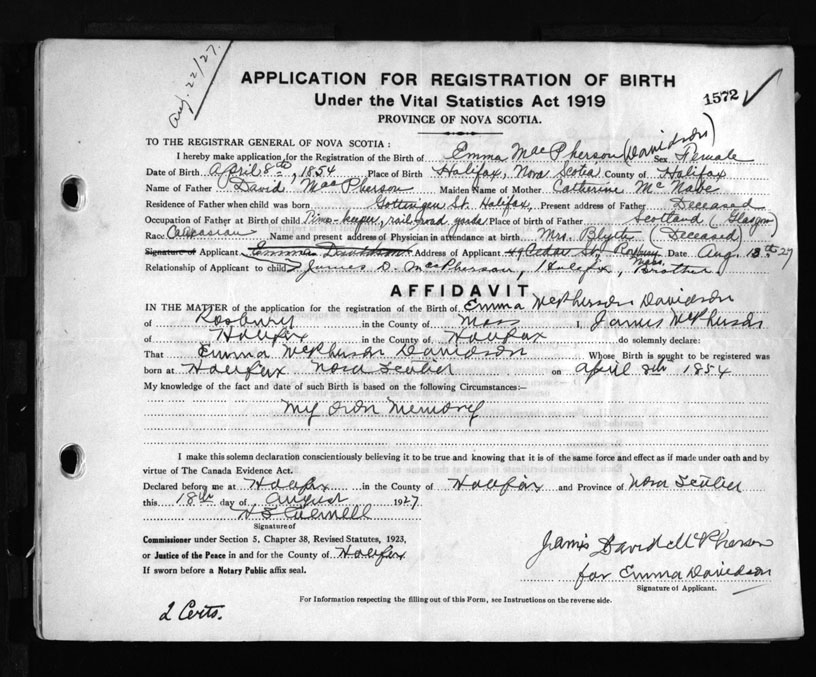 Aug. 22/27.
APPLICATION FOR REGISTRATION OF BIRTH
Under the Vital Statistics Act 1919
1572 ✓
PROVINCE OF NOVA SCOTIA.
TO THE REGISTRAR GENERAL OF NOVA SCOTIA:
I hereby make application for the Registration of the Birth of Emma MacPherson (Davidson) Sex Female
Date of Birth April 8th, 1854 Place of Birth Halifax, Nova Scotia County of Halifax
Name of Father David MacPherson Maiden Name of Mother Catherine McNabe
Residence of Father when child was born Gottingen St. Halifax, Present address of Father Deceased
Occupation of Father at Birth of child Time-keeper, rail-road yards Place of birth of Father Scotland (Glasgow)
Race Name and present address of Physician in attendance at birth Mrs. Blyth (Deceased)
Signature of Applicant Emma Davidson Address of Applicant 49 Cedar St, Roxbury Mass. Date Aug. 18th 27
Relationship of Applicant to child James D. McPherson, Halifax, Brother
AFFIDAVIT
IN THE MATTER of the application for the registration of the Birth of Emma McPherson Davidson
of Roxbury in the County of Mass I, James McPherson
of Halifax in the County of Halifax do solemnly declare:
That Emma McPherson Davidson Whose Birth is sought to be registered was
born at Halifax Nova Scotia on April 8th 1854
My knowledge of the fact and date of such Birth is based on the following Circumstances:—
My own Memory
I make this solemn declaration conscientiously believing it to be true and knowing that it is of the same force and effect as if made under oath and by
virtue of The Canada Evidence Act.
Declared before me at Halifax in the County of Halifax and Province of Nova Scotia
this 18th day of August 1927
Signature of
Commissioner under Section 5, Chapter 38, Revised Statutes, 1923,
or Justice of the Peace in and for the County of Halifax
If sworn before a Notary Public affix seal.
James David McPherson
for Emma Davidson
Signature of Applicant.
For Information respecting the filling out of this Form, see Instructions on the reverse side.
2 Certs.